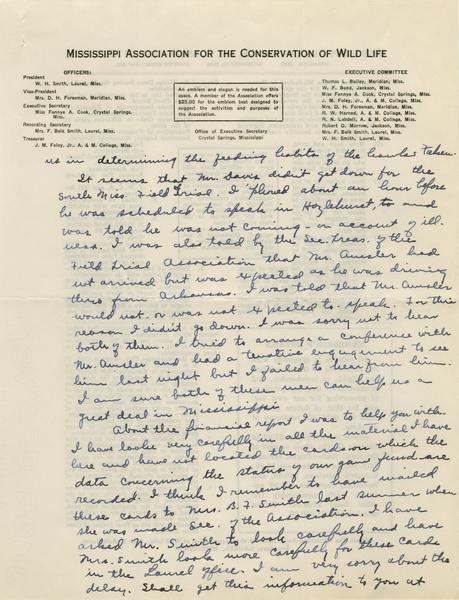 MISSISSIPPI ASSOCIATION FOR THE CONSERVATION OF WILD LIFE
OFFICERS:
President
W. H. Smith, Laurel, Miss.
Vice-President
Mrs. D. H. Foresman, Meridian, Miss.
Executive Secretary
Miss Fannye A. Cook, Crystal Springs, Miss.
Recording Secretary
Mrs. F. Belk Smith, Laurel, Miss.
Treasurer
J. M. Foley, Jr. A. & M. College, Miss.
An emblem and slogan is needed for this
space. A member of the Association offers
$25.00 for the emblem best designed to
suggest the activities and purposes of
the Association.
Office of Executive Secretary
Crystal Springs, Mississippi
EXECUTIVE COMMITTEE
Thomas L. Bailey, Meridian, Miss.
W. F. Bond, Jackson, Miss.
Miss Fannye A. Cook, Crystal Springs, Miss.
J. M. Foley, Jr., A. & M. College, Miss.
Mrs. D. H. Foresman, Meridian, Miss.
R. W. Harned, A. & M. College, Miss.
R. N. Lobdell, A. & M. College, Miss.
Robert D. Morrow, Jackson, Miss.
Mrs. F. Belk Smith, Laurel, Miss.
W. H. Smith, Laurel, Miss.
us in determining the feeding habits of the hawks taken.
It seems that Mr. Davis didn't get down for the
South Miss. Field Trial. I phoned about an hour before
he was scheduled to speak in Hazlehurst, to and
was told he was not coming - on account of ill-
ness. I was also told by the Sec. Treas. of the
Field Trial Association that Mr. Amsler had
not arrived but was expected as he was driving
thro from Arkansas. I was told that Mr. Amsler
would not - or was not expected to speak. For this
reason I didn't go down. I was sorry not to hear
both of them. I tried to arrange a conference with
Mr. Amsler and had a tentative engagement to see
him last night but I failed to hear from him.
I am sure both of these men can help us a
great deal in Mississippi
About the financial report I was to help you with.
I have looke very carefully in all the material I have
here and have not located the cards on which the
data concerning the status of our game fund are
recorded. I think I remember to have mailed
these cards to Mrs. B. F. Smith last summer when
she was made Sec. of the Association. I have
asked Mr. Smith to look carefully and have
Mrs. Smith look more carefully for these cards
in the Laurel office. I am very sorry about the
delay. Shall get this information to you at